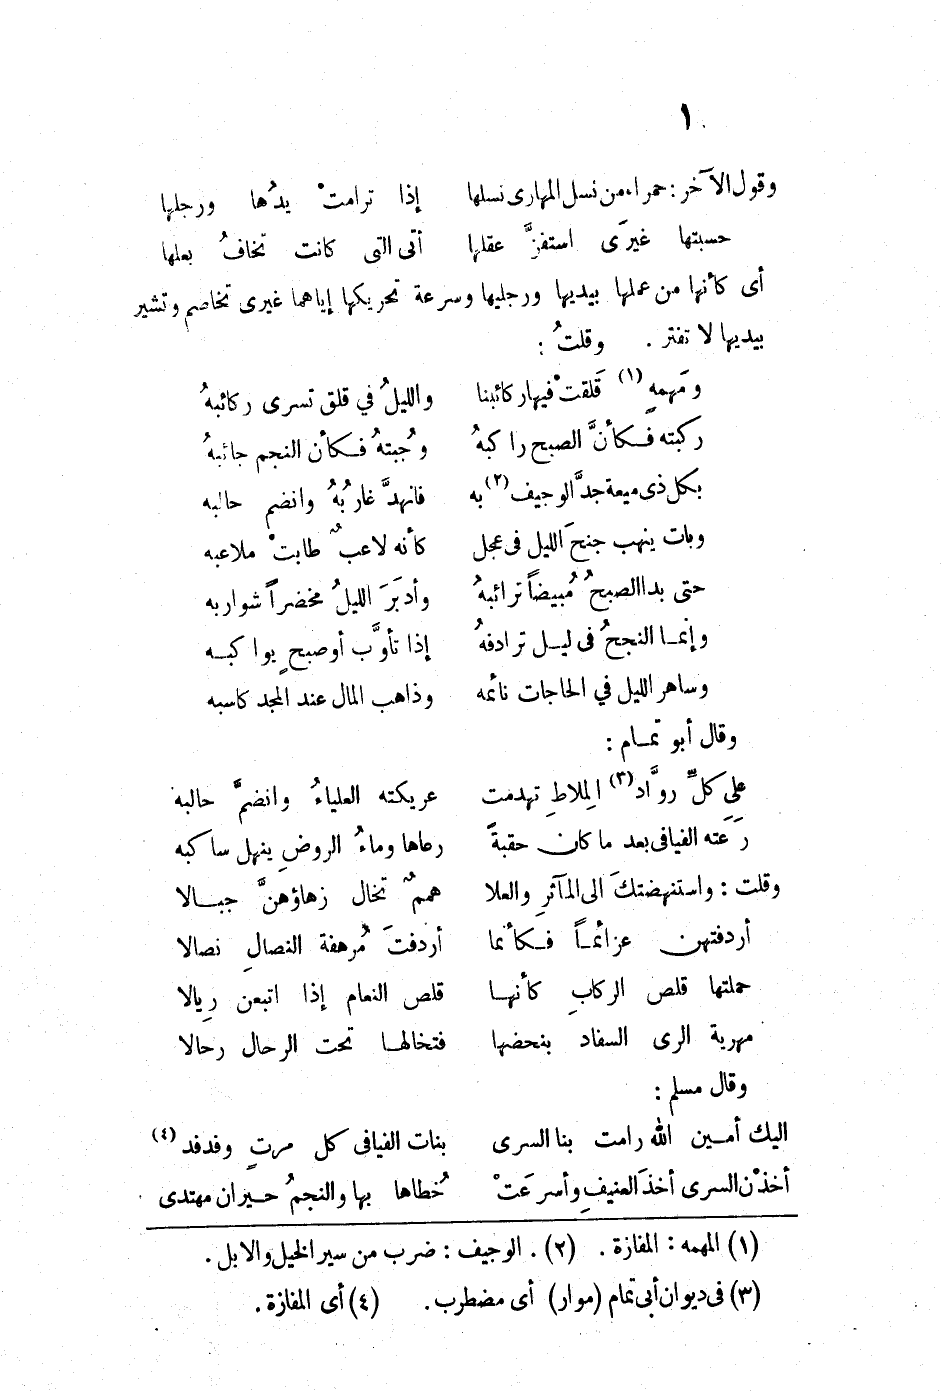 ١
وقول الآخر : حمراء من نسل المهارى نسلها إذا ترامتْ يدُها ورجلها
حسبتها غيرَى استفزَّ عقلها أتى التى كانت تخافُ بعلها
أى كأنها من عملها بيديها ورجليها وسرعة تحريكها إياهما غيرى تخاصم وتشير
بيديها لا تفتر . وقلتُ :
ومَهمهٍ (١) قَلقتْ فيها ركائبنا والليلُ في قلق تسرى ركائبهُ
ركبته فكأنَّ الصبح راكبهُ وجُبتهُ فكأن النجم جانبهُ
بكل ذى ميعة جدَّ الوجيف (٢) به فانهدَّ غاربُهُ وانضم حالبه
وبات ينهب جنحَ الليل فى عجل كأنه لاعبٌ طابتْ ملاعبه
حتى بدا الصبحُ مُبيضاً ترائبهُ وأدبَرَ الليلُ مخضراً شواربه
وإنما النجحُ فى ليل ترادفهُ إذا تأوَّب أو صبحٍ يواكبه
وساهر الليل في الحاجات نائمه وذاهب المال عند المجد كاسبه
وقال أبو تمام :
على كلِّ روَّاد (٣) المِلاطِ تهدمت عريكته العلياءُ وانضمَّ حالبه
رَعَته الفيافى بعد ما كان حقبةً رعاها وماءُ الروضِ ينهل ساكبه
وقلت : واستنهضتكَ الى المآثرِ والعلا هممٌ تخال زهاؤهنَّ جبالا
أردفتهن عزائماً فكأنما أردفتَ مُرهفة النصالِ نصالا
حملتها قلص الركابِ كأنها قلص النعام إذا اتبعن رِيالا
مهرية الرى السفاد بنحضها فتخالها تحت الرحال رحالا
وقال مسلم :
اليك أمين الله رامت بنا السرى بنات الفيافى كل مرتٍ وفدفد (٤)
أخذْن السرى أخذَ العنيفِ وأسرعَتْ خُطاها بها والنجمُ حيران مهتدى
(١) المهمه : المفازة . (٢) . الوجيف : ضرب من سير الخيل والابل .
(٣) فى ديوان أبى تمام (موار) أى مضطرب . (٤) أى المفازة .